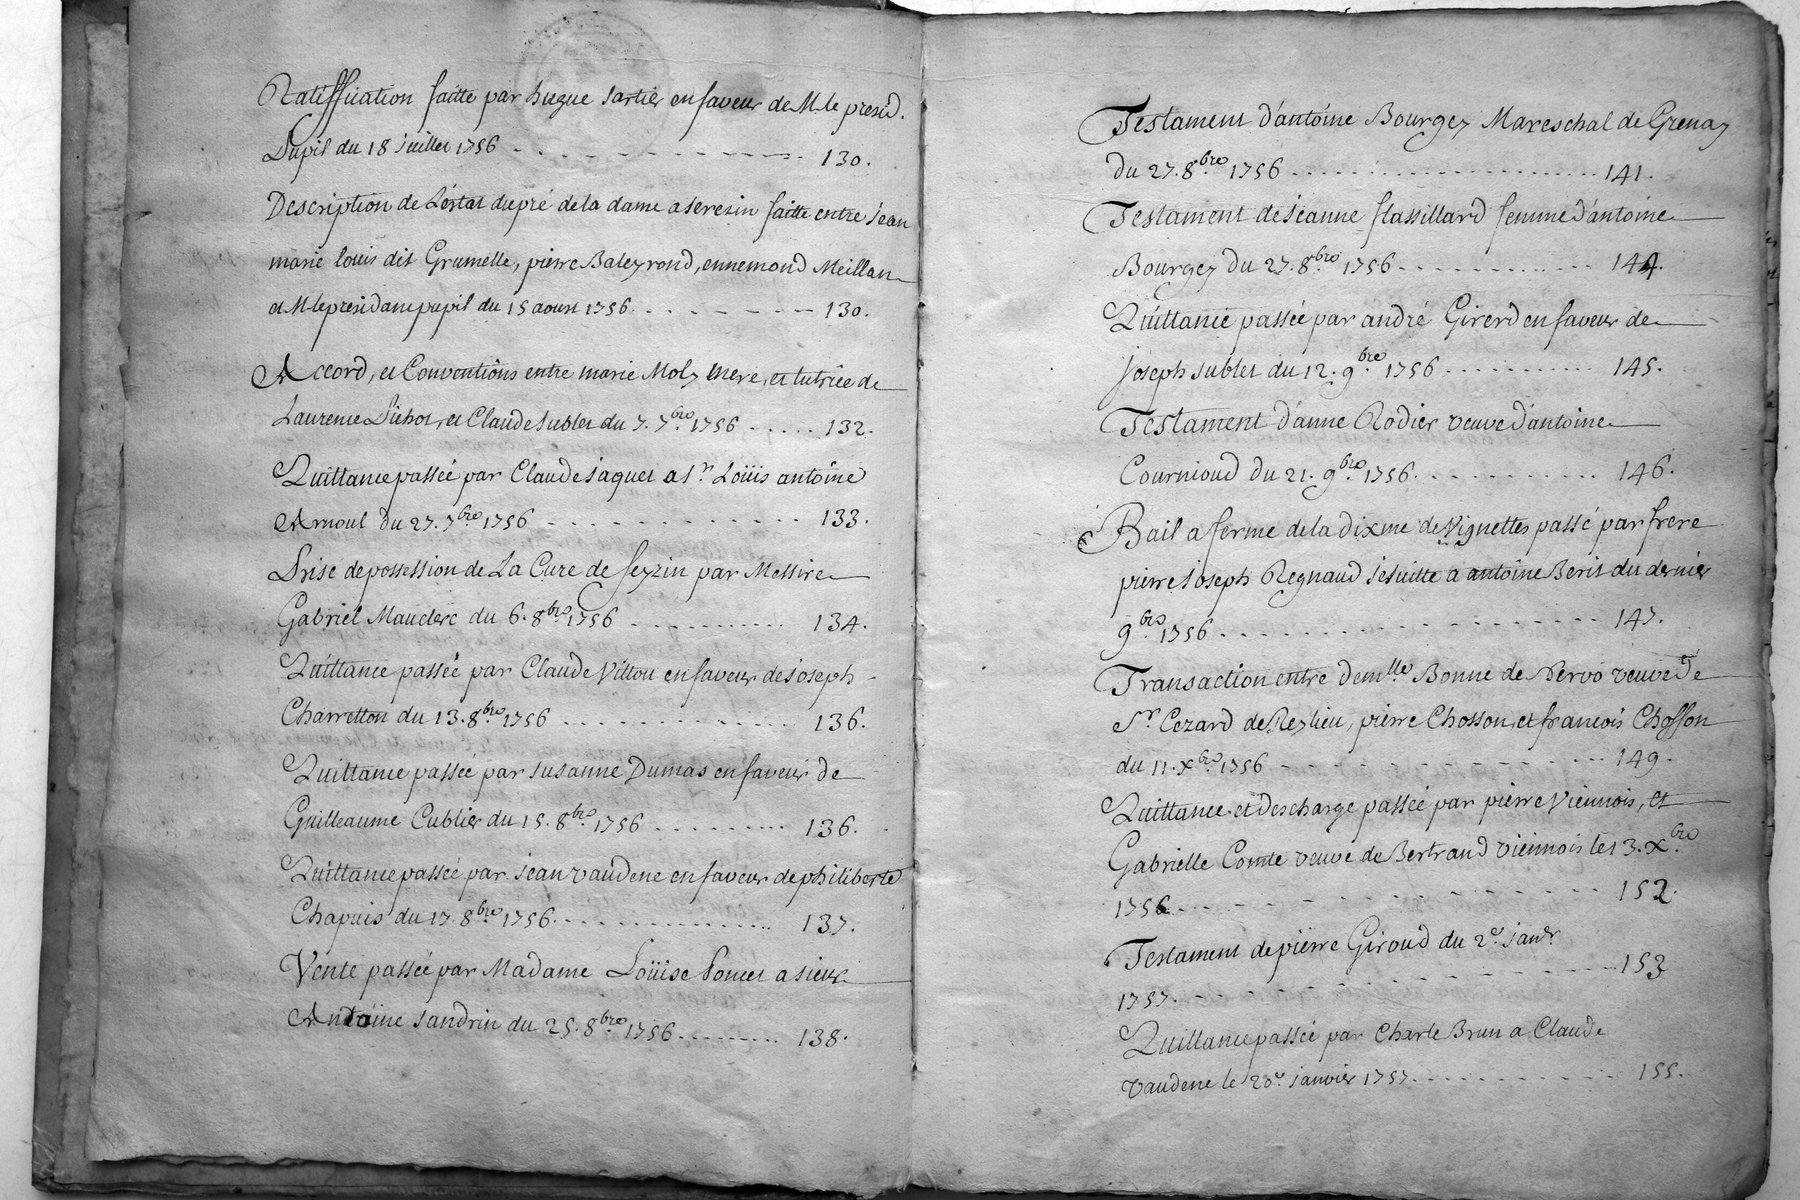 Ratiffication faitte par hugue sartier en faveur de Mr le presid.
Dupil du 18 juillet 1756 130.
Description de L'estat du pré de la dame a serezin faitte entre jean
marie louis dit Grumelle, pierre Baleyrond, ennemond Meillan
et Mr le presidant pupil du 15 aoust 1756. 130.
Accord, et Conventions entre marie Moly mere, et tutrice de
Laurence Pichot, et Claude sublet du 7. 7bre. 1756 132.
Quittance passée par Claude jaquet a sr. Loüis antoine
Arnoul du 27. 7bre. 1756 133.
Prise de possession de La Cure de feyzin par Messire
Gabriel Mauclerc du 6. 8bre. 1756 134.
Quittance passée par Claude Vittou en faveur de joseph
Charretton du 13. 8bre. 1756 136.
Quittance passée par susanne Dumas en faveur de
Guilleaume Cublier du 15. 8bre. 1756 136.
Quittance passée par jean vaudene en faveur de philiberte
Chapuis du 17. 8bre. 1756. 137.
Vente passée par Madame Loüise Poncet a sieur
Antoine sandrin du 25. 8bre. 1756 138.
Testament d'antoine Bourgey Mareschal de Grenay
du 27. 8bre. 1756 141.
Testament de jeanne flassillard femme d'antoine
Bourgey du 27. 8bre. 1756 144.
Quittance passée par andré Girerd en faveur de
joseph sublet du 12. 9bre. 1756 145.
Testament d'anne Rodier veuve d'antoine
Cournioud du 21. 9bre. 1756. 146.
Bail a ferme de la dixme de Vignettes passé par frere
pierre joseph Regnaud jesuitte a antoine Berit du dernier
9bre. 1756 147.
Transaction entre demlle. Bonne de Nervo veuve de
sr. Cezard de Rezlieu, pierre Chosson, et francois Chosson
du 11. xbre. 1756 149.
Quittance et descharge passée par pierre viennois, et
Gabrielle Comte veuve de Bertrand viennois le 13. xbre.
1756. 152.
Testament de pierre Giroud du 2e. janvr.
1757. 153
Quittance passée par Charle Brun a Claude
vaudene le 20e. janvier 1757. 155.